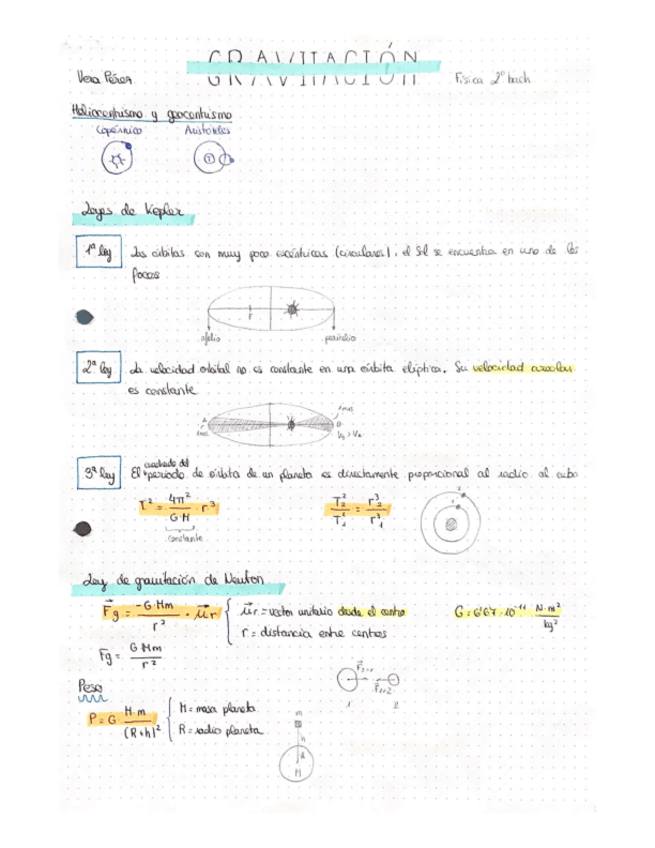 GRAVITACIÓN
Vera Pérez
Física 2º bach
Heliocentrismo y geocentrismo
Copérnico Aristóteles
T
Leyes de Kepler
1ª ley Las órbitas son muy poco excéntricas (circulares), el Sol se encuentra en uno de los
focos
F
afelio perihelio
2ª ley La velocidad orbital no es constante en una órbita elíptica. Su velocidad areolar
es constante
1 mes
A B
1 mes V_B > V_A
cuadrado del
3ª ley El periodo de órbita de un planeta es directamente proporcional al radio al cubo
T² = 4π²/G·M · r³ T₂²/T₁² = r₂³/r₁³
constante
2
1
Ley de gravitación de Newton
F⃗g = -G·Mm/r² · u⃗r u⃗r = vector unitario desde el centro G = 6'67·10⁻¹¹ N·m²/kg²
r = distancia entre centros
Fg = G·Mm/r²
Peso
1 2
P = G · M·m/(R+h)² M = masa planeta
R = radio planeta
m
h
R
M